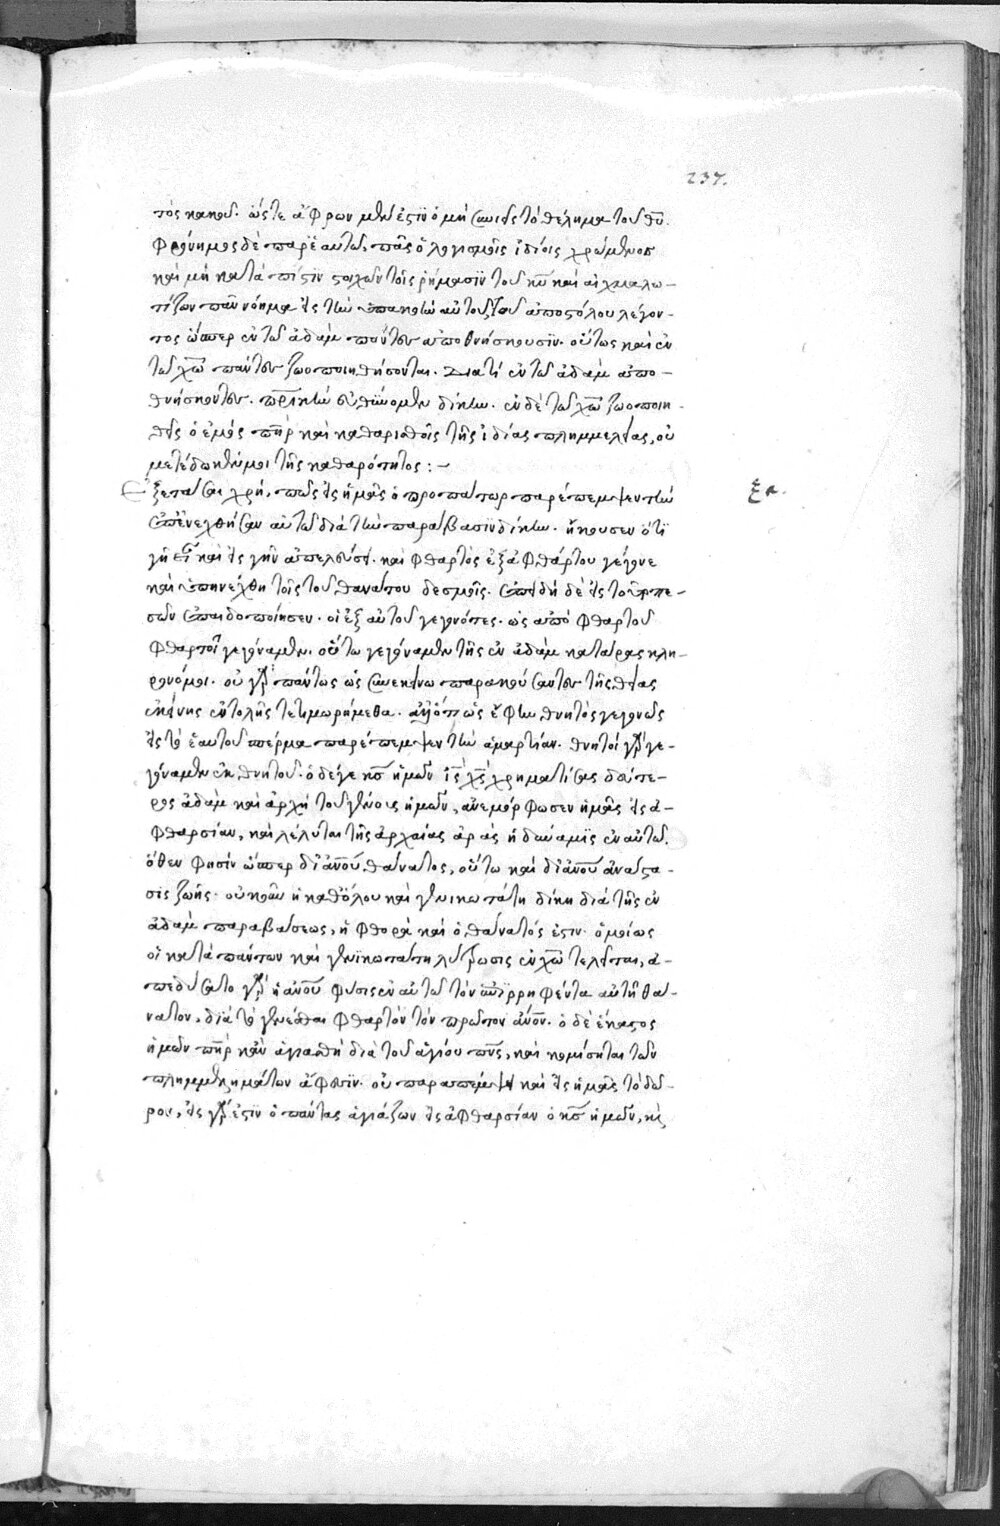 237.
τὸς κακοῦ. ὥστε ἄφρων μὲν ἐστὶν ὁ μὴ συνιεὶς τὸ θέλημα τοῦ θ̅υ̅.
φρόνιμος δὲ παρ' ἑαυτῶ, πᾶς ὁ λογισμοῖς ἰδίοις χρώμενος
καὶ μὴ κατὰ πίστιν στοιχῶν τοῖς ῥήμασιν τοῦ κ̅υ̅ καὶ αἰχμαλω-
τίζων πᾶν νόημα εἰς τὴν ὑπακοὴν αὐτοῦ. τοῦ ἀποστόλου λέγον-
τος ὥσπερ ἐν τῶ ἀδὰμ πάντες ἀποθνήσκουσιν. οὕτως καὶ ἐν
τῶ χ̅ω̅ πάντες ζωοποιηθήσονται. Διατί ἐν τῶ ἀδὰμ ἀπο-
θνήσκοντες. εὐθύνομεν δίκην. ἐν δὲ τῶ χ̅ω̅ ζωοποιη-
θεὶς ὁ ἐμὸς π̅η̅ρ̅ καὶ καθαρισθεὶς τῆς ἰδίας πλημμελείας, οὐ
μετέδωκέ μοι τῆς καθαρότητος :-
Ἐξετάσαι χρή, πῶς εἰς ἡμᾶς ὁ προπάτωρ παρέπεμψεν τὴν ξα.
ἐπενεχθεῖσαν αὐτῶ διὰ τὴν παράβασιν δίκην. ἤκουσεν ὅτι
γῆ εἶ καὶ εἰς γῆν ἀπελεύσει. καὶ φθαρτὸς ἐξ ἀφθάρτου γέγονε
καὶ ὑπηνέχθη τοῖς τοῦ θανάτου δεσμοῖς. ἐπειδὴ δὲ εἰς τοῦτο πε-
σὼν ἐπαιδοποίησεν. οἱ ἐξ αὐτοῦ γεγονότες. ὡς ἀπὸ φθαρτοῦ
φθαρτοὶ γεγόναμεν. οὕτω γεγόναμεν τῆς ἐν ἀδὰμ κατάρας κλη-
ρονόμοι. οὐ γὰρ πάντως ὡς σὺν ἐκείνω παρακούσαντες τῆς θείας
ἐκείνης ἐντολῆς τετιμωρήμεθα. ἀλλ' ὅτι ὡς ἔφην θνητὸς γεγονὼς
εἰς τὸ ἑαυτοῦ σπέρμα παρέπεμψεν τὴν ἁμαρτίαν. θνητοὶ γὰρ γε-
γόναμεν ἐκ θνητοῦ. ὁ δέ γε κ̅ς̅ ἡμῶν ι̅ς̅ χ̅ς̅ χρηματίσας δεύτε-
ρος ἀδὰμ καὶ ἀρχὴ τοῦ γένους ἡμῶν, ἀνεμόρφωσεν ἡμᾶς εἰς ἀ-
φθαρσίαν, καὶ λέλυται τῆς ἀρχαίας ἀρᾶς ἡ δύναμις ἐν αὐτῶ.
ὅθεν φησὶν ὥσπερ δι' α̅ν̅ο̅υ̅ θάνατος, οὕτω καὶ δι' α̅ν̅ο̅υ̅ ἀνάστα-
σις ζωῆς. οὐκοῦν ἡ καθόλου καὶ γενικωτάτη δίκη διὰ τῆς ἐν
ἀδὰμ παραβάσεως, ἡ φθορὰ καὶ ὁ θάνατός ἐστιν. ὁμοίως
ἡ κατὰ πάντων καὶ γενικωτάτη λύτρωσις ἐν χ̅ω̅ τελεῖται, ἀ-
πεδύσατο γὰρ ἡ α̅ν̅ο̅υ̅ φύσις ἐν αὐτῶ τὸν ἐπιρριφέντα αὐτῆ θά-
νατον, διὰ τὸ γενέσθαι φθαρτὸν τὸν πρῶτον α̅ν̅ο̅ν̅. ὁ δὲ ἑκάστος
ἡμῶν π̅η̅ρ̅ κἂν ἁγιασθῆ διὰ τοῦ ἁγίου π̅ν̅ς̅, καὶ κομίσηται τῶν
πλημμελημάτων ἄφεσιν. οὐ παραπέμπει καὶ εἰς ἡμᾶς τὸ δῶ-
ρον, εἷς γάρ ἐστιν ὁ πάντας ἁγιάζων εἰς ἀφθαρσίαν ὁ κ̅ς̅ ἡμῶν, κ̀